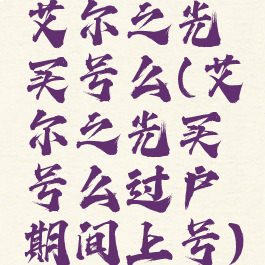 艾尔之光
买号么(艾
尔之光买
号么过户
期间上号)